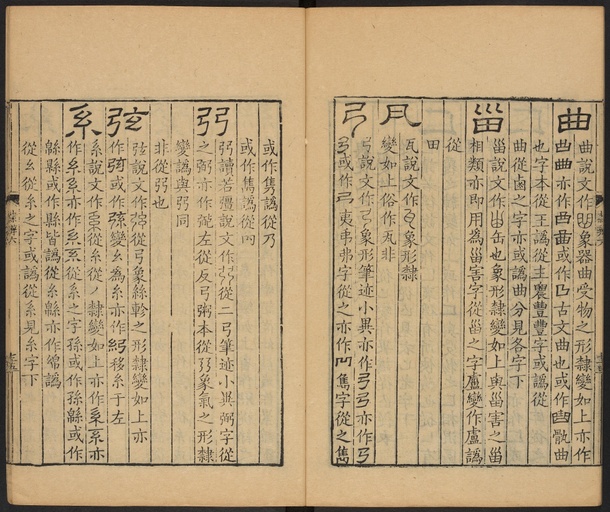 曲
曲說文作象器曲受物之形隸變如上亦作
曲亦作或作古文曲也或作骫曲
也字本從王譌從主農豊豐字或譌從
曲從齒之字亦或譌曲分見各字下
甾
甾說文作缶也象形隸變如上與甾害之甾
相類亦即用為甾害字從甾之字盧變作盧譌
從
田
瓦
瓦說文作象形隸
變如上俗作非
弓
弓說文作弓象形筆迹小異亦作弓弓亦作弓
弓或作夷弗弟字從之亦作雋字從之雋
或作雋譌從乃
或作雋譌從
弜
弜讀若彊說文作從二弓筆迹小異弼字從
之弼亦作左從反弓粥本從弜象氣之形隸
變譌與弜同
非從弜也
弦
弦說文作從弓象絲軫之形隸變如上亦
作或作弦變幺為糸亦作移糸于左
系
系說文作從糸從丿隸變如上亦作系系亦
作亦作從系之字孫或作孫緜或作
緜縣或作縣皆譌從糸緜亦作綿譌
從幺從糸之字或譌從系見糸字下